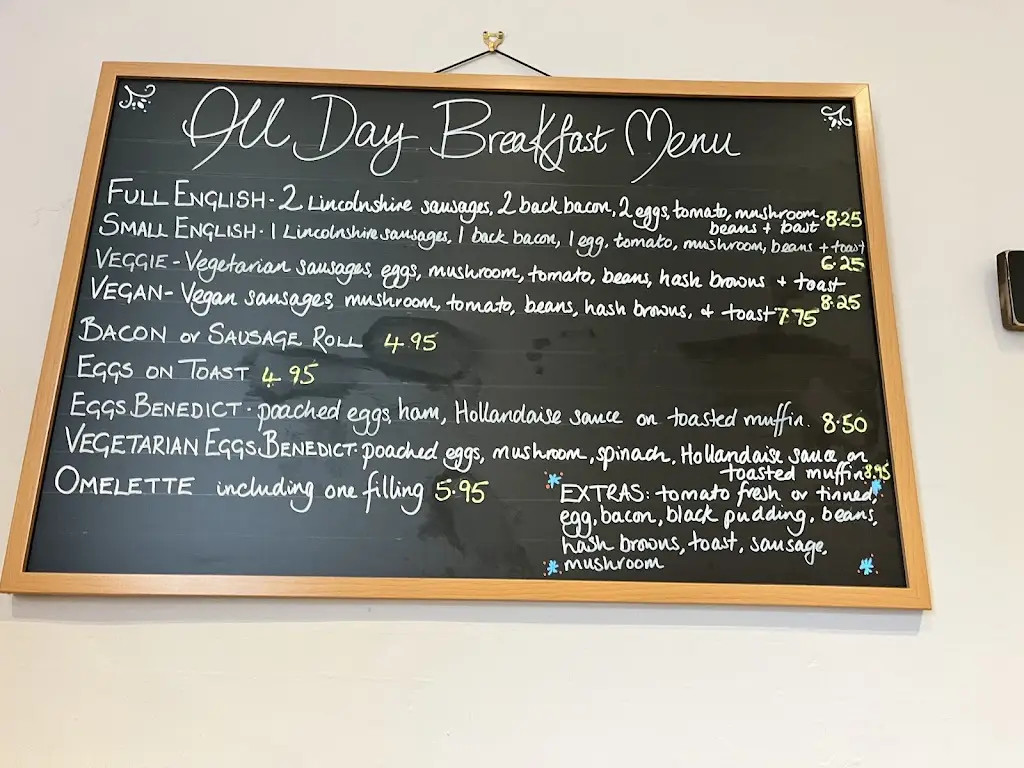 All Day Breakfast Menu
FULL ENGLISH - 2 Lincolnshire sausages, 2 back bacon, 2 eggs, tomato, mushroom,
beans + toast 8.25
SMALL ENGLISH - 1 Lincolnshire sausages, 1 back bacon, 1 egg, tomato, mushroom, beans + toast
6.25
VEGGIE - Vegetarian sausages, eggs, mushroom, tomato, beans, hash browns + toast
8.25
VEGAN - Vegan sausages, mushroom, tomato, beans, hash browns, + toast 7.75
BACON or SAUSAGE ROLL 4.95
EGGS ON TOAST 4.95
EGGS BENEDICT - poached eggs, ham, Hollandaise sauce on toasted muffin. 8.50
VEGETARIAN EGGS BENEDICT - poached eggs, mushroom, spinach, Hollandaise sauce on
toasted muffin 8.95
OMELETTE including one filling 5.95
EXTRAS: tomato fresh or tinned,
egg, bacon, black pudding, beans,
hash browns, toast, sausage,
mushroom